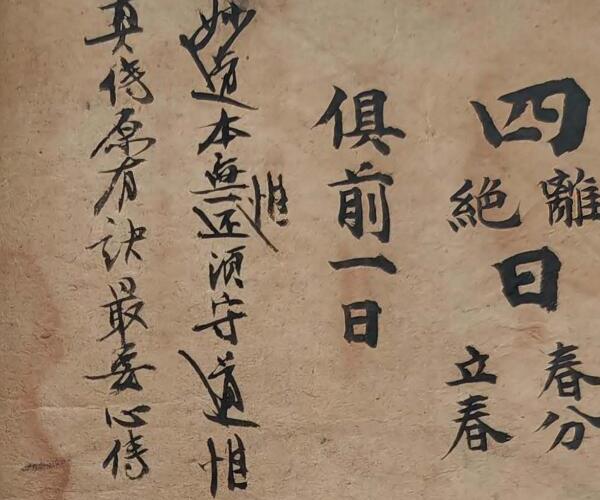 四離絶日春分立春
俱前一日
妙道本無惟还須守道惟
真傳原有訣最要心傳